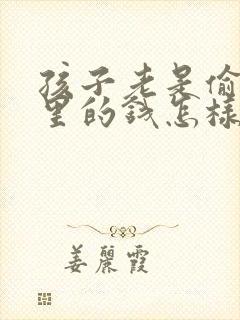 孩子老是偷
里的钱怎样
姜丽霞